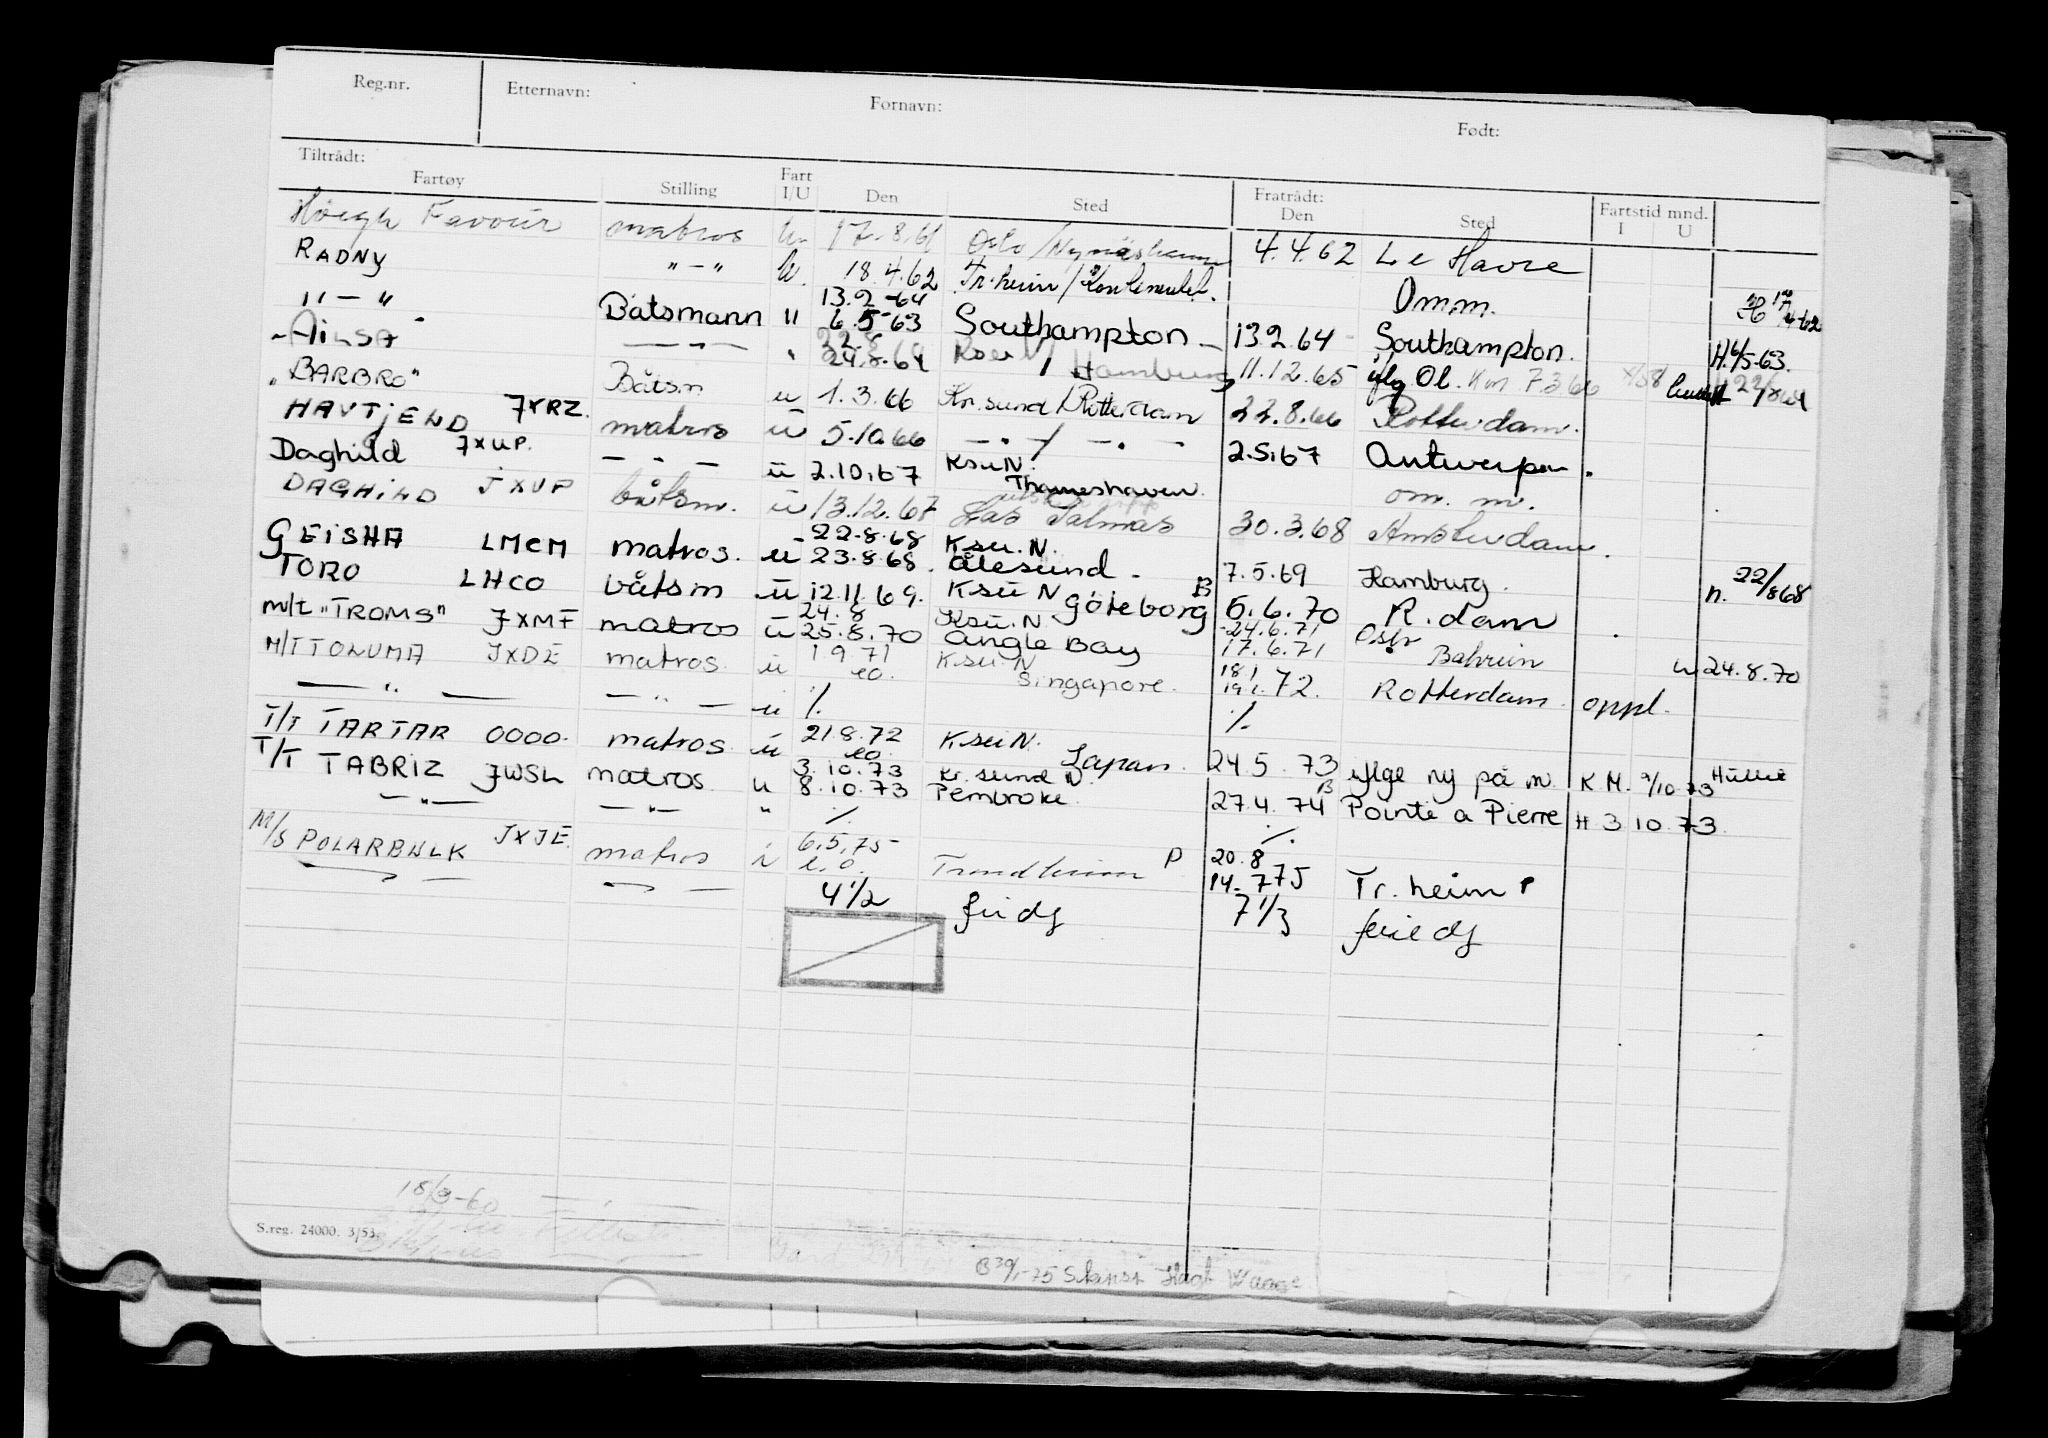 Reg.nr. Etternavn: Fornavn: Født:
Tiltrådt: Fratrådt:
Fartøy Stilling Fart I/U Den Sted Den Sted Fartstid mnd. I U
Høegh Favour matros u. 17.8.61 Oslo/Nynäshamn 4.4.62 Le Havre
RADNY "-" u. 18.4.62 Tr.heim/
"-" Båtsmann " 13.2-64 6.5-63 Southampton 13.2.64 Omm.
"AILSA" — " — " 22.8 24.8.64 Ksu N / Hamburg 13.2.64 Southampton. H.6/5-63.
"BARBRO" Båtsm u 1.3.66 Kr.sund/Rotterdam 11.12.65 iflg Ol. 7.3.66
HAVTJEND JYRZ. matros u 5.10.66 — " / — " — 22.8.66 Rotterdam.
Daghild JXUP. — " — u 2.10.67 Ksu N. Thameshaven 2.5.67 Antwerpen.
DAGHILD JXUP båtsm. u 13.12.67 Las Palmas om. m.
30.3.68 Amsterdam.
GEISHA LMCM matros. u 22.8.68 23.8.68. Ksu. N. Ålesund - 7.5.69 Hamburg. n. 22/8 68
TORO LHCO båtsm u 12.11.69. Ksu N Göteborg B 6.6.70 R.dam
m/t "TROMS" JXMF matros u 24.8 25.8.70 Ksu. N. Angle Bay 24.6.71 17.6.71 Oslo Bahrein u 24.8.70
M/T TONUMA JXDE matros. u 1 9 71 eo. Ksu N Singapore. 18.1 19.1.72. Rotterdam. oppl.
— " — — " — u % %
T/T TARTAR OOOO. matros. u 21 8.72 eo. Ksu N. Japan. 24.5.73 iflge ny på m. K.M. 9/10-73
T/T TABRIZ JWSL matros. u 3.10.73 8.10.73 Kr.sund N Pembroke. B 27.4.74 Pointe a Pierre H 3 10.73.
— " — — " — " % %
M/S POLARBULK JXJE. matros i 6.5.75 e.o. Trondheim P 20.8 14-7 75 Tr.heim P
4 1/2 7 1/3
18/3-60
S.reg. 24000. 3/53.